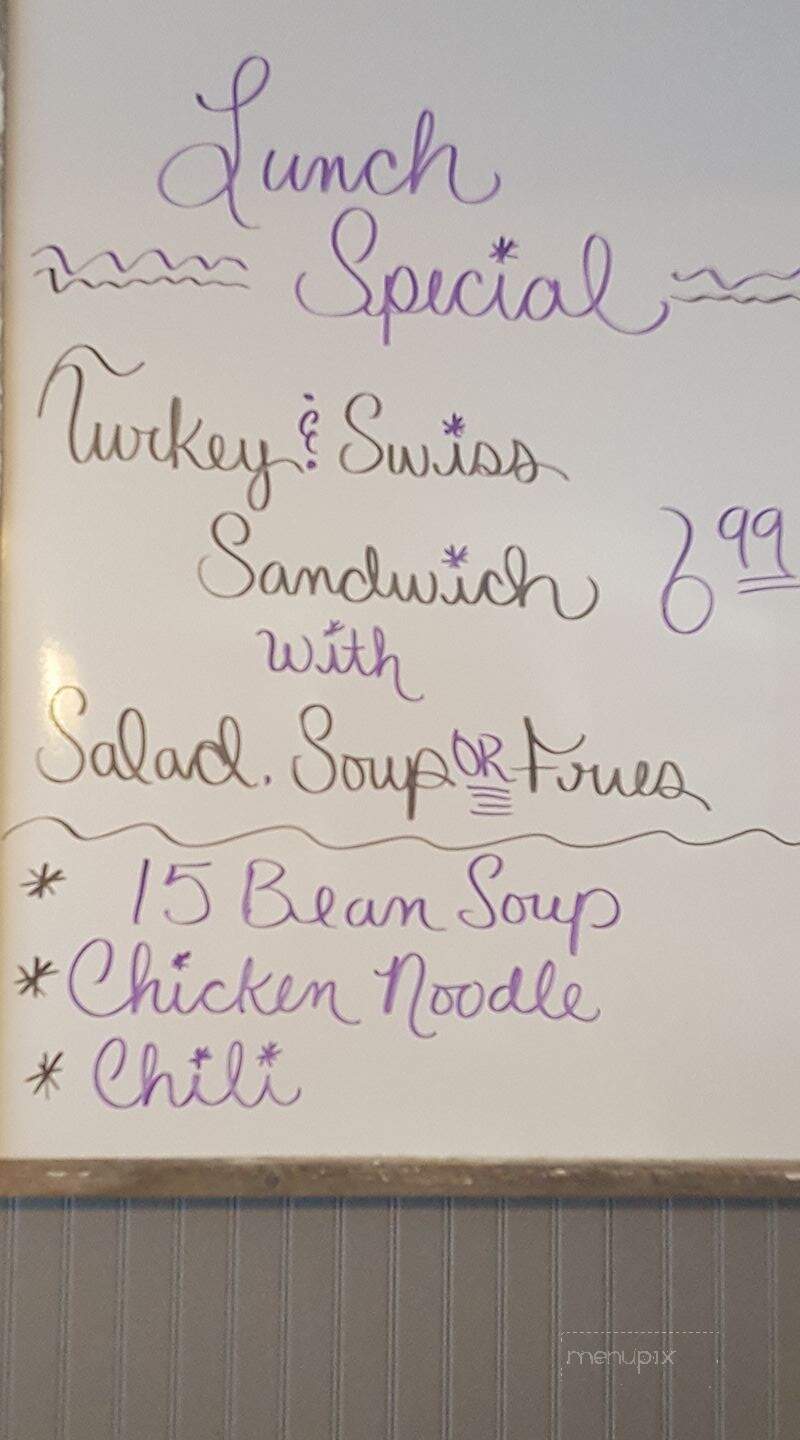 Lunch
Special
Turkey & Swiss
Sandwich 6 99
with
Salad, Soup OR Fries
* 15 Bean Soup
* Chicken Noodle
* Chili
menupix